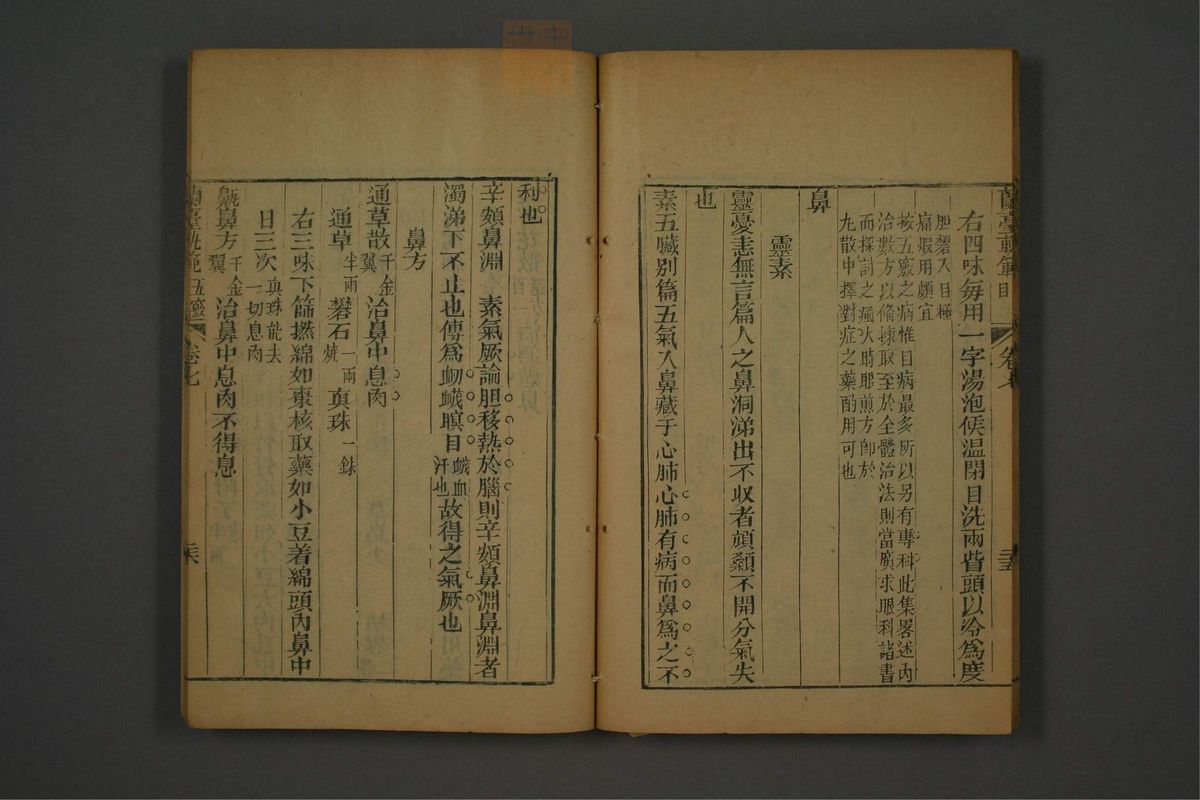 蘭臺軌範 目 卷七 三五
右四味每用一字湯泡候溫閉目洗兩眥頭以冷為度
胆礬入目極
痛暇用頗宜
按五竅之病惟目病最多所以另有專科此集畧述內
治數方以備採取至於全體治法則當廣求眼科諸書
而探討之風火時眼煎方即於
九散中擇對症之藥酌用可也
鼻
靈素
靈憂恚無言篇人之鼻洞涕出不収者頏顙不開分氣失
也
素五臟別篇五氣入鼻藏于心肺心肺有病而鼻為之不
利也
辛頞鼻淵 素氣厥論胆移熱於腦則辛頞鼻淵鼻淵者
濁涕下不止也傳為衂衊瞑目衊血汗也故得之氣厥也
鼻方
通草散千金翼治鼻中息肉
通草半兩 礬石一兩燒 真珠一銖
右三味下篩撚綿如棗核取藥如小豆着綿頭內鼻中
日三次真珠能去一切息肉
齆鼻方千金翼治鼻中息肉不得息
蘭臺軌範 五竅 卷七 三六